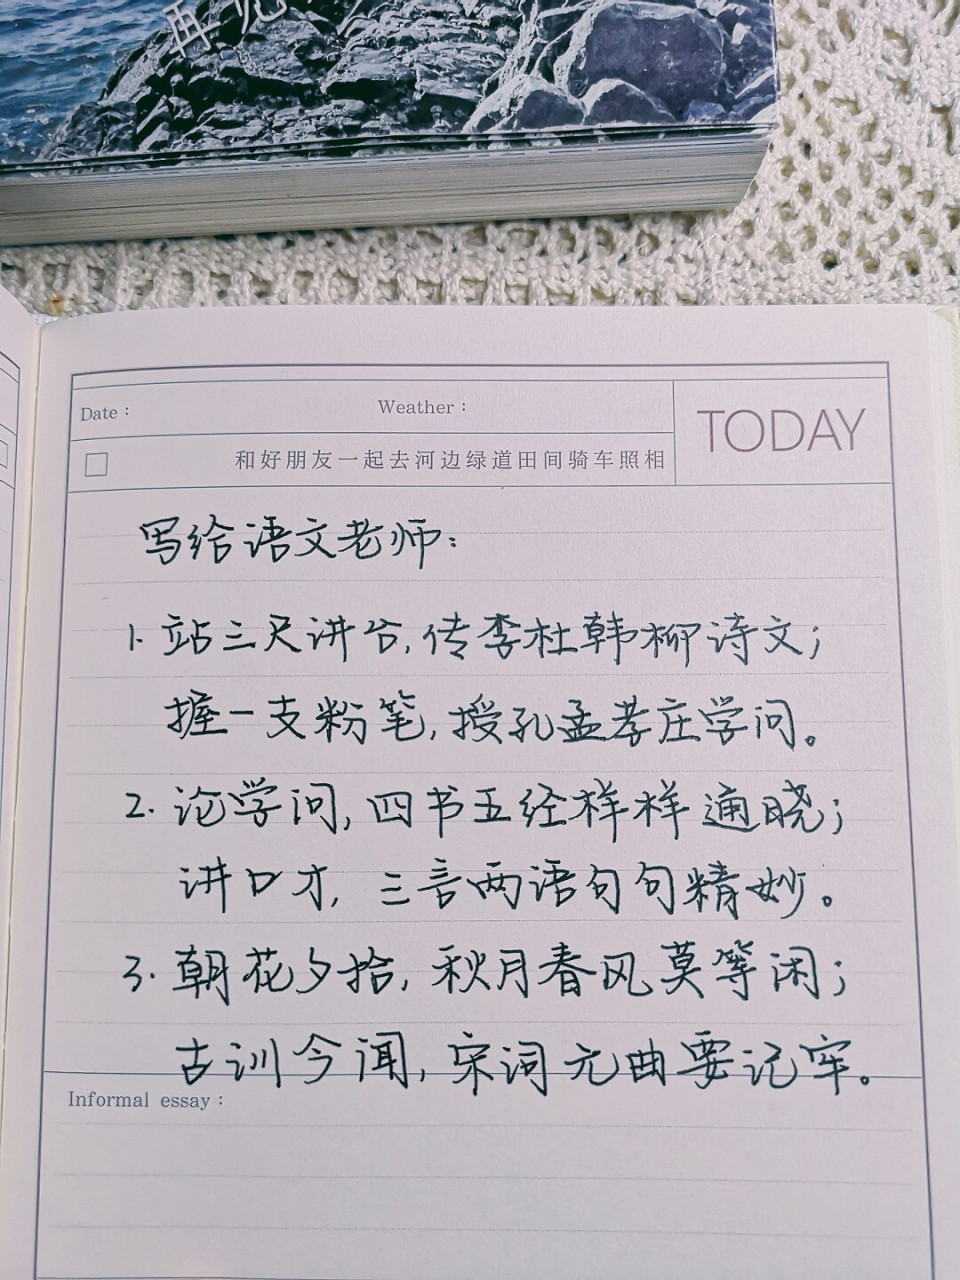 再
Date :
Weather :
TODAY
和好朋友一起去河边绿道田间骑车照相
写给语文老师：
1. 站三尺讲台，传李杜韩柳诗文；
握一支粉笔，授孔孟孝庄学问。
2. 论学问，四书五经样样通晓；
讲口才，三言两语句句精妙。
3. 朝花夕拾，秋月春风莫等闲；
古训今闻，宋词元曲要记牢。
Informal essay :